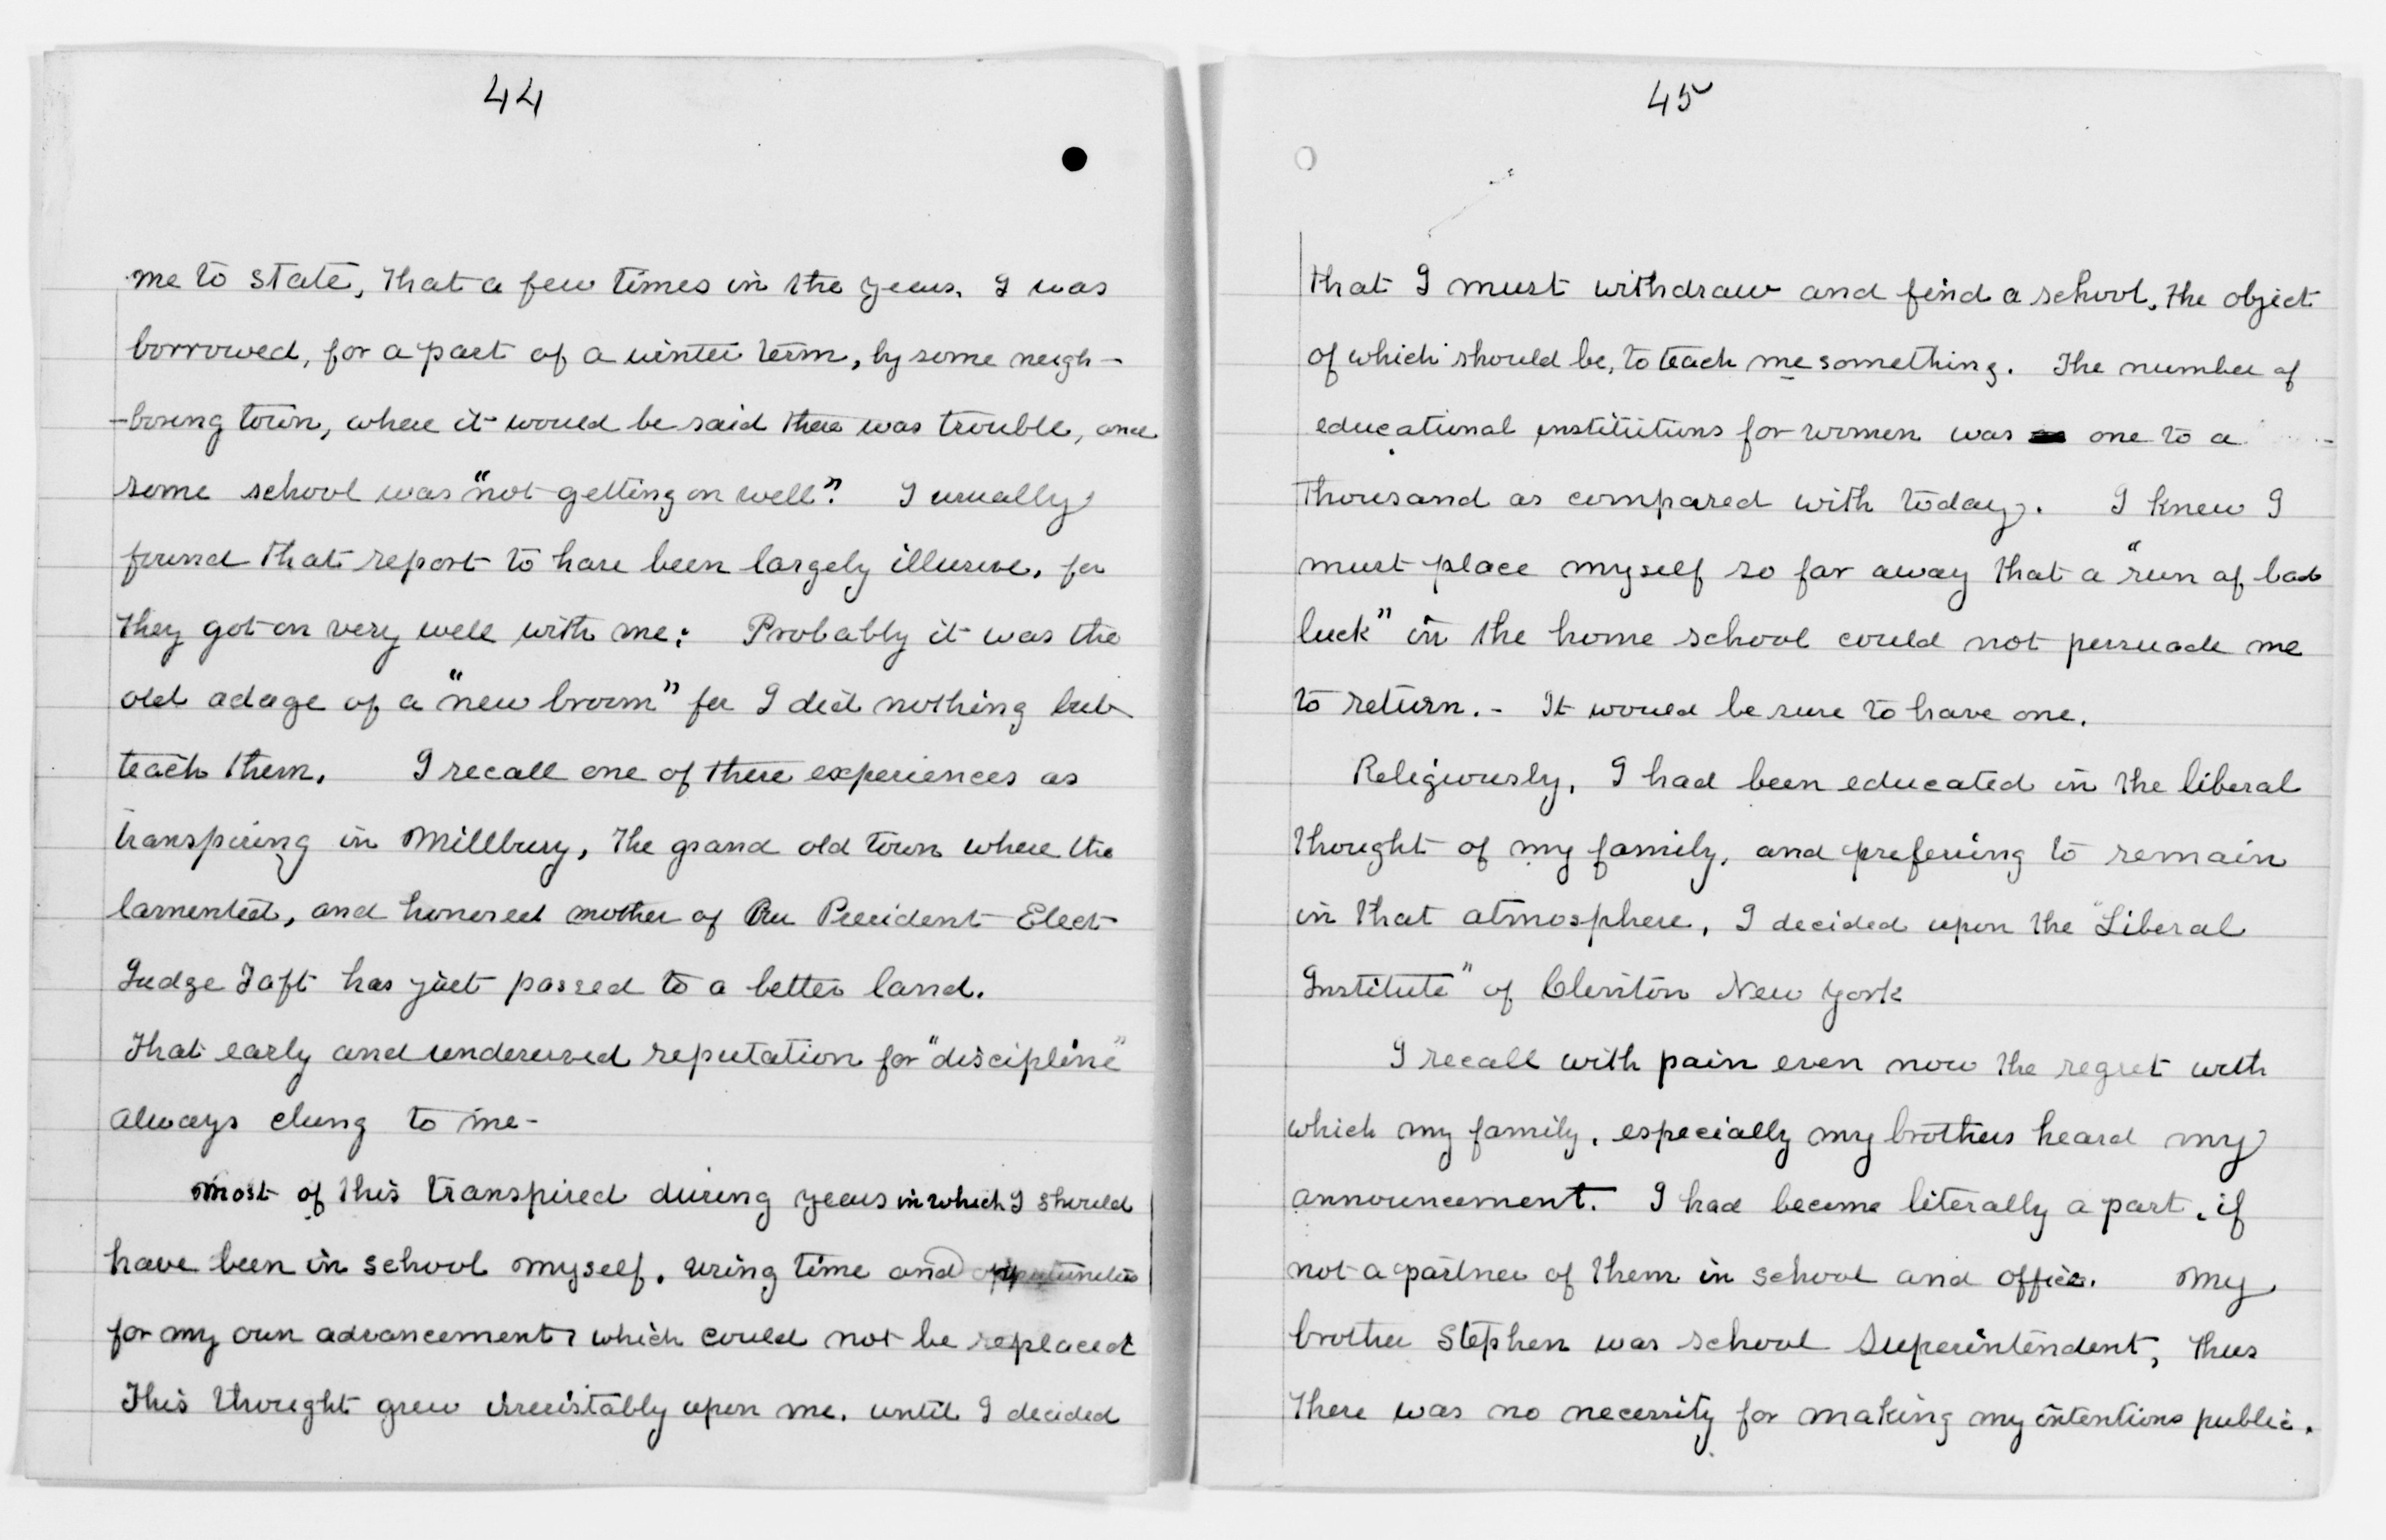 44
me to state, that a few times in the years, I was
borrowed, for a part of a winter term, by some neigh-
-boring town, where it would be said there was trouble, and
some school was "not getting on well". I usually
found that report to have been largely illusive, for
they got on very well with me: Probably it was the
old adage of a "new broom" for I did nothing but
teach them. I recall one of these experiences as
transpiring in Millbury, the grand old town where the
lamented, and honored mother of our President Elect
Judge Taft has just passed to a better land.
That early and undeserved reputation for "discipline"
always clung to me-
Most of this transpired during years in which I should
have been in school myself, using time and opportunities
for my own advancement, which could not be replaced
This thought grew irresistably upon me, until I decided
45
that I must withdraw and find a school, the object
of which should be, to teach me something. The number of
educational institutions for women was one to a
thousand as compared with today. I knew I
must place myself so far away that a "run of bad
luck" in the home school could not persuade me
to return. - It would be sure to have one.
Religiously, I had been educated in the liberal
thought of my family, and preferring to remain
in that atmosphere, I decided upon the "Liberal
Institute" of Clinton New York
I recall with pain even now the regret with
which my family, especially my brothers heard my
announcement. I had become literally a part, if
not a partner of them in school and office. My
brother Stephen was school Superintendent, thus
there was no necessity for making my intentions public.